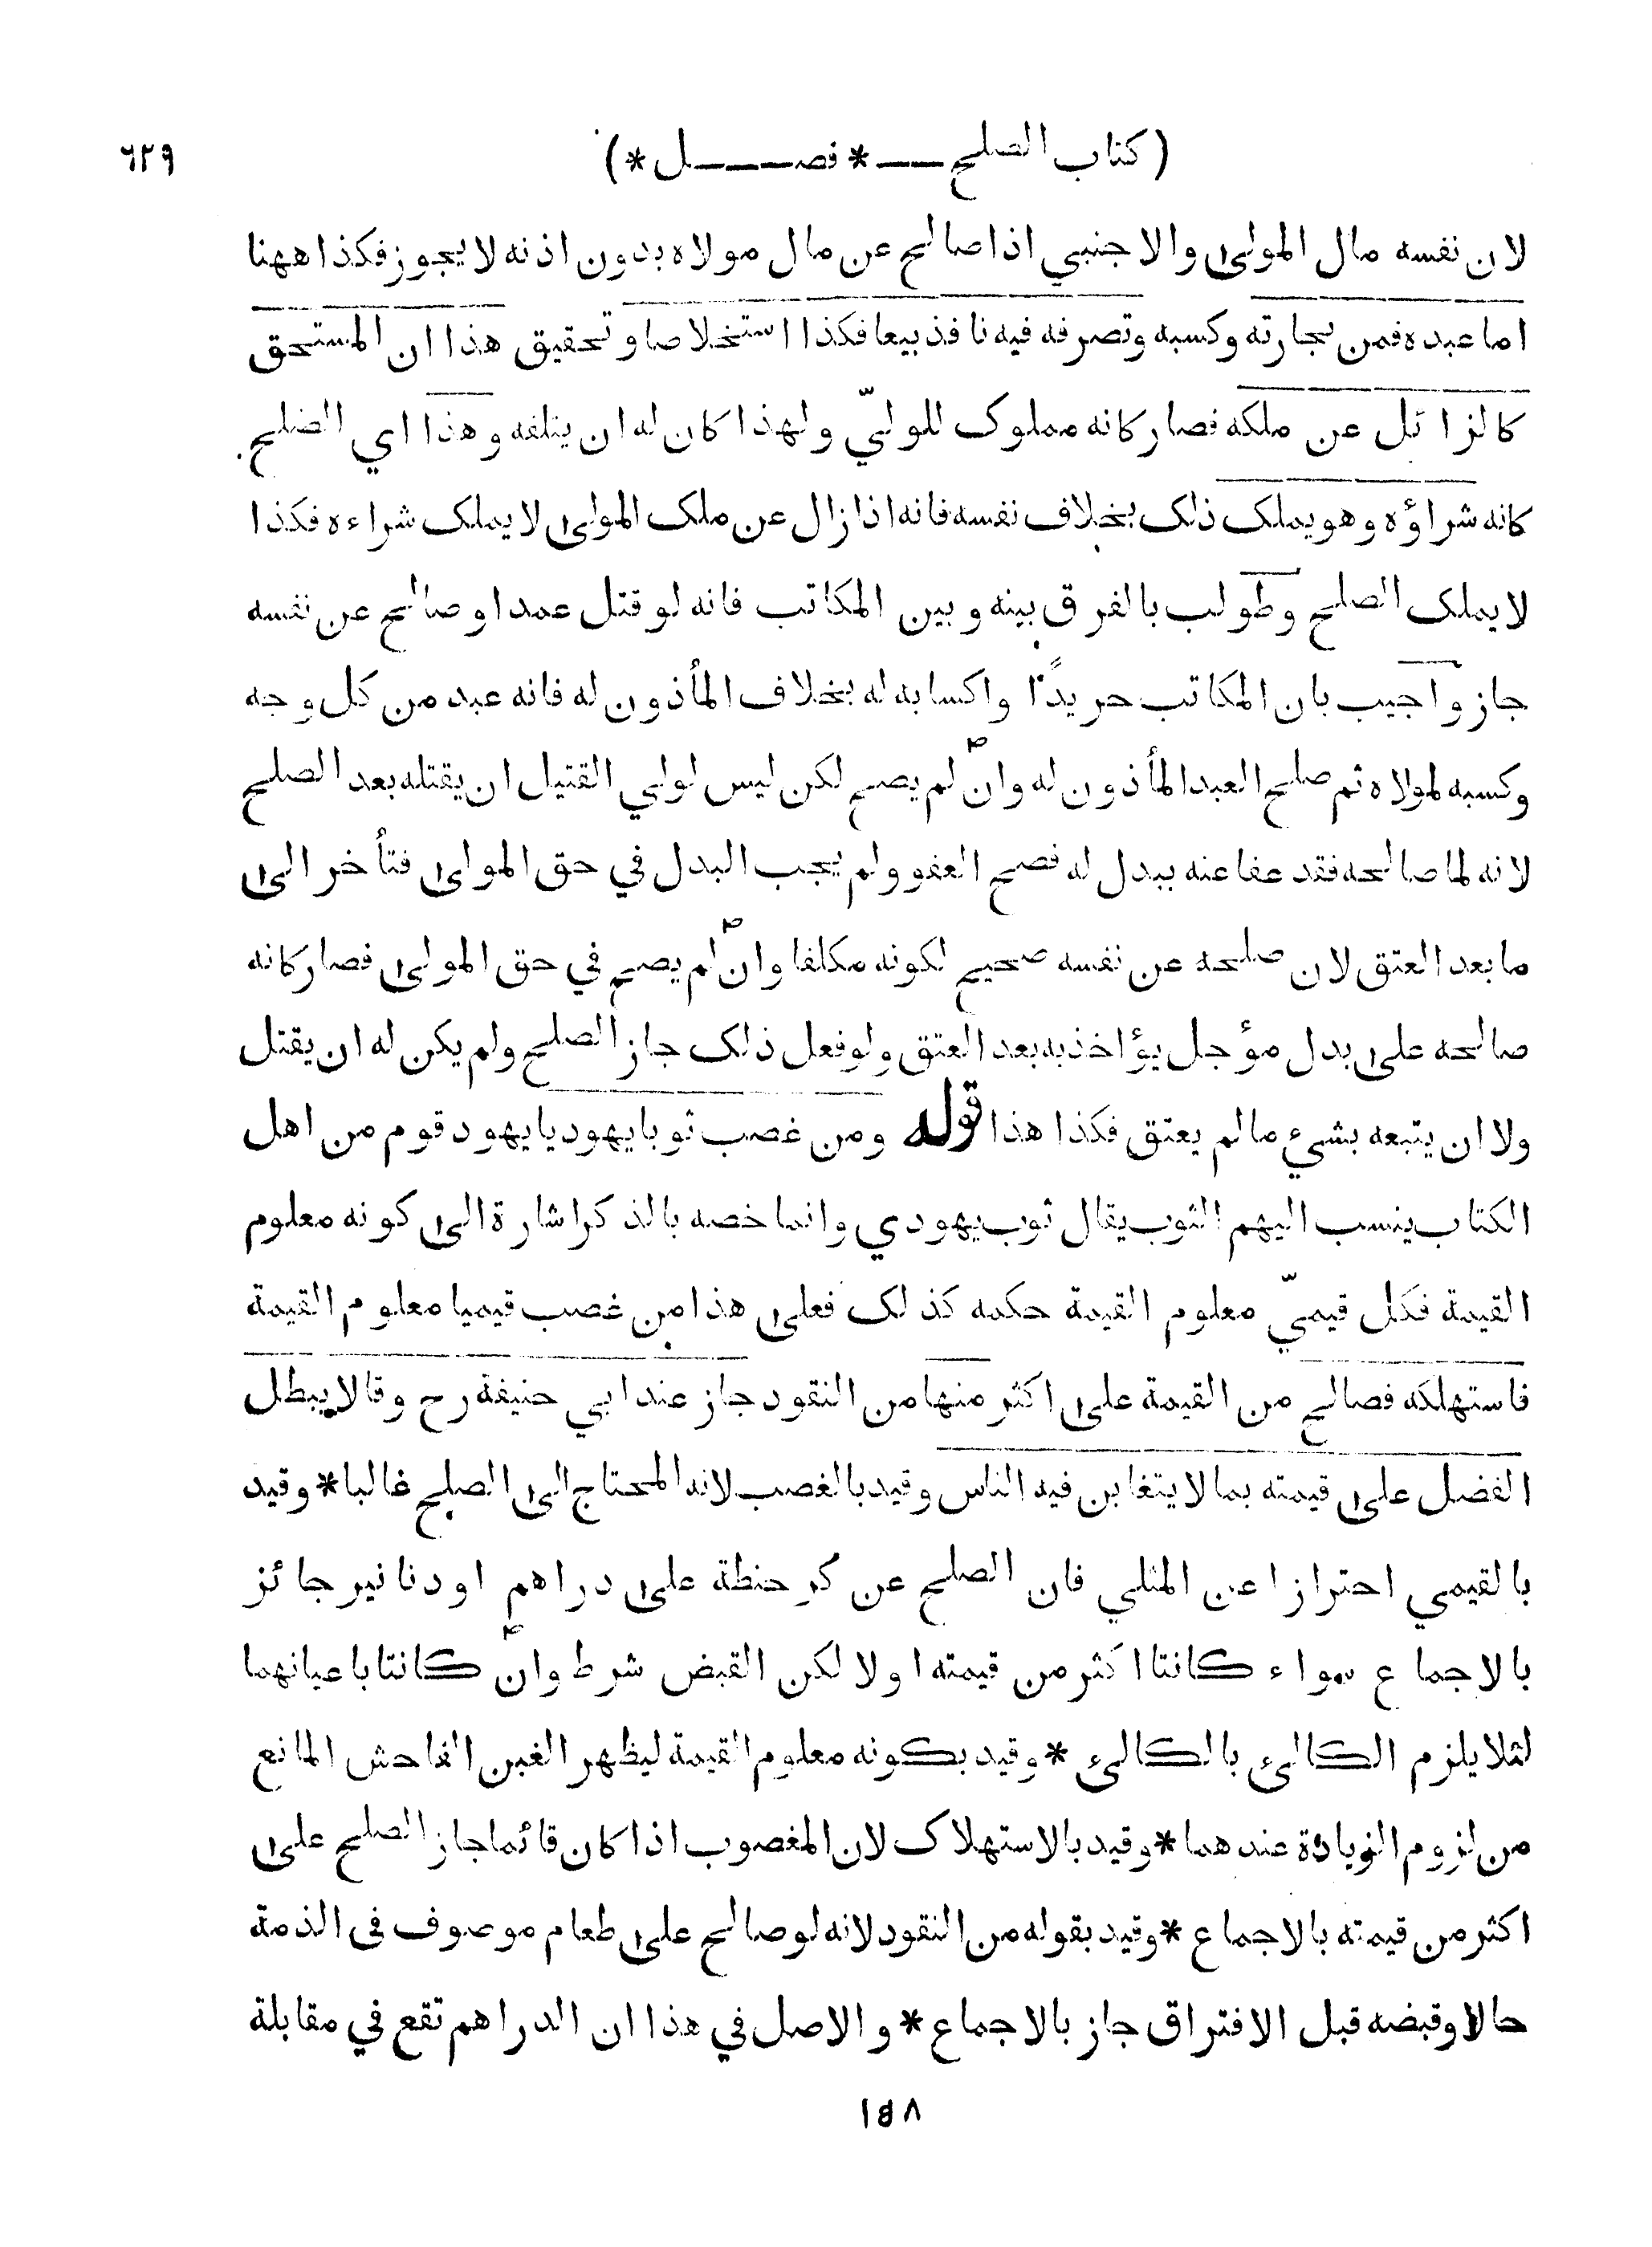 (كتاب الصلح — * فصـــل *)
٦٢٩
لان نفسه مال المولى والاجنبي اذا صالح عن مال مولاه بدون اذنه لا يجوز فكذا ههنا
اما عبده فمن تجارته وكسبه وتصرفه فيه نافذ بيعا فكذا استخلاصا وتحقيق هذا ان المستحق
كالزائل عن ملكه فصار كانه مملوك للوليّ ولهذا كان له ان يتلفه وهذا اي الصلح
كانه شراؤه وهو يملك ذلك بخلاف نفسه فانه اذا زال عن ملك المولى لا يملك شراءه فكذا
لا يملك الصلح وطولب بالفرق بينه وبين المكاتب فانه لو قتل عمدا وصالح عن نفسه
جاز واجيب بان المكاتب حر يدًا واكسابه له بخلاف المأذون له فانه عبد من كل وجه
وكسبه لمولاه ثم صلح العبد المأذون له وان لم يصح لكن ليس لولي القتيل ان يقتله بعد الصلح
لانه لما صالحه فقد عفا عنه ببدل له فصح العفو ولم يجب البدل في حق المولى فتأخر الى
ما بعد العتق لان صلحه عن نفسه صحيح لكونه مكلفا وان لم يصح في حق المولى فصار كانه
صالحه على بدل مؤجل يؤاخذ به بعد العتق ولو فعل ذلك جاز الصلح ولم يكن له ان يقتل
ولا ان يتبعه بشيء ما لم يعتق فكذا هذا قوله ومن غصب ثوبا يهوديا يهود قوم من اهل
الكتاب ينسب اليهم الثوب يقال ثوب يهودي وانما خصه بالذكر اشارة الى كونه معلوم
القيمة فكل قيميّ معلوم القيمة حكمه كذلك فعلى هذا من غصب قيميا معلوم القيمة
فاستهلكه فصالح من القيمة على اكثر منها من النقود جاز عند ابي حنيفة رح وقالا يبطل
الفضل على قيمته بما لا يتغابن فيه الناس وقيد بالغصب لانه المحتاج الى الصلح غالبا * وقيد
بالقيمي احترازا عن المثلي فان الصلح عن كر حنطة على دراهم او دنانير جائز
بالاجماع سواء كانتا اكثر من قيمته او لا لكن القبض شرط وان كانتا باعيانهما
لئلا يلزم الكالئ بالكالئ * وقيد بكونه معلوم القيمة ليظهر الغبن الفاحش المانع
من لزوم الزيادة عندهما * وقيد بالاستهلاك لان المغصوب اذا كان قائما جاز الصلح على
اكثر من قيمته بالاجماع * وقيد بقوله من النقود لانه لو صالح على طعام موصوف في الذمة
حالا وقبضه قبل الافتراق جاز بالاجماع * والاصل في هذا ان الدراهم تقع في مقابلة
١٥٨